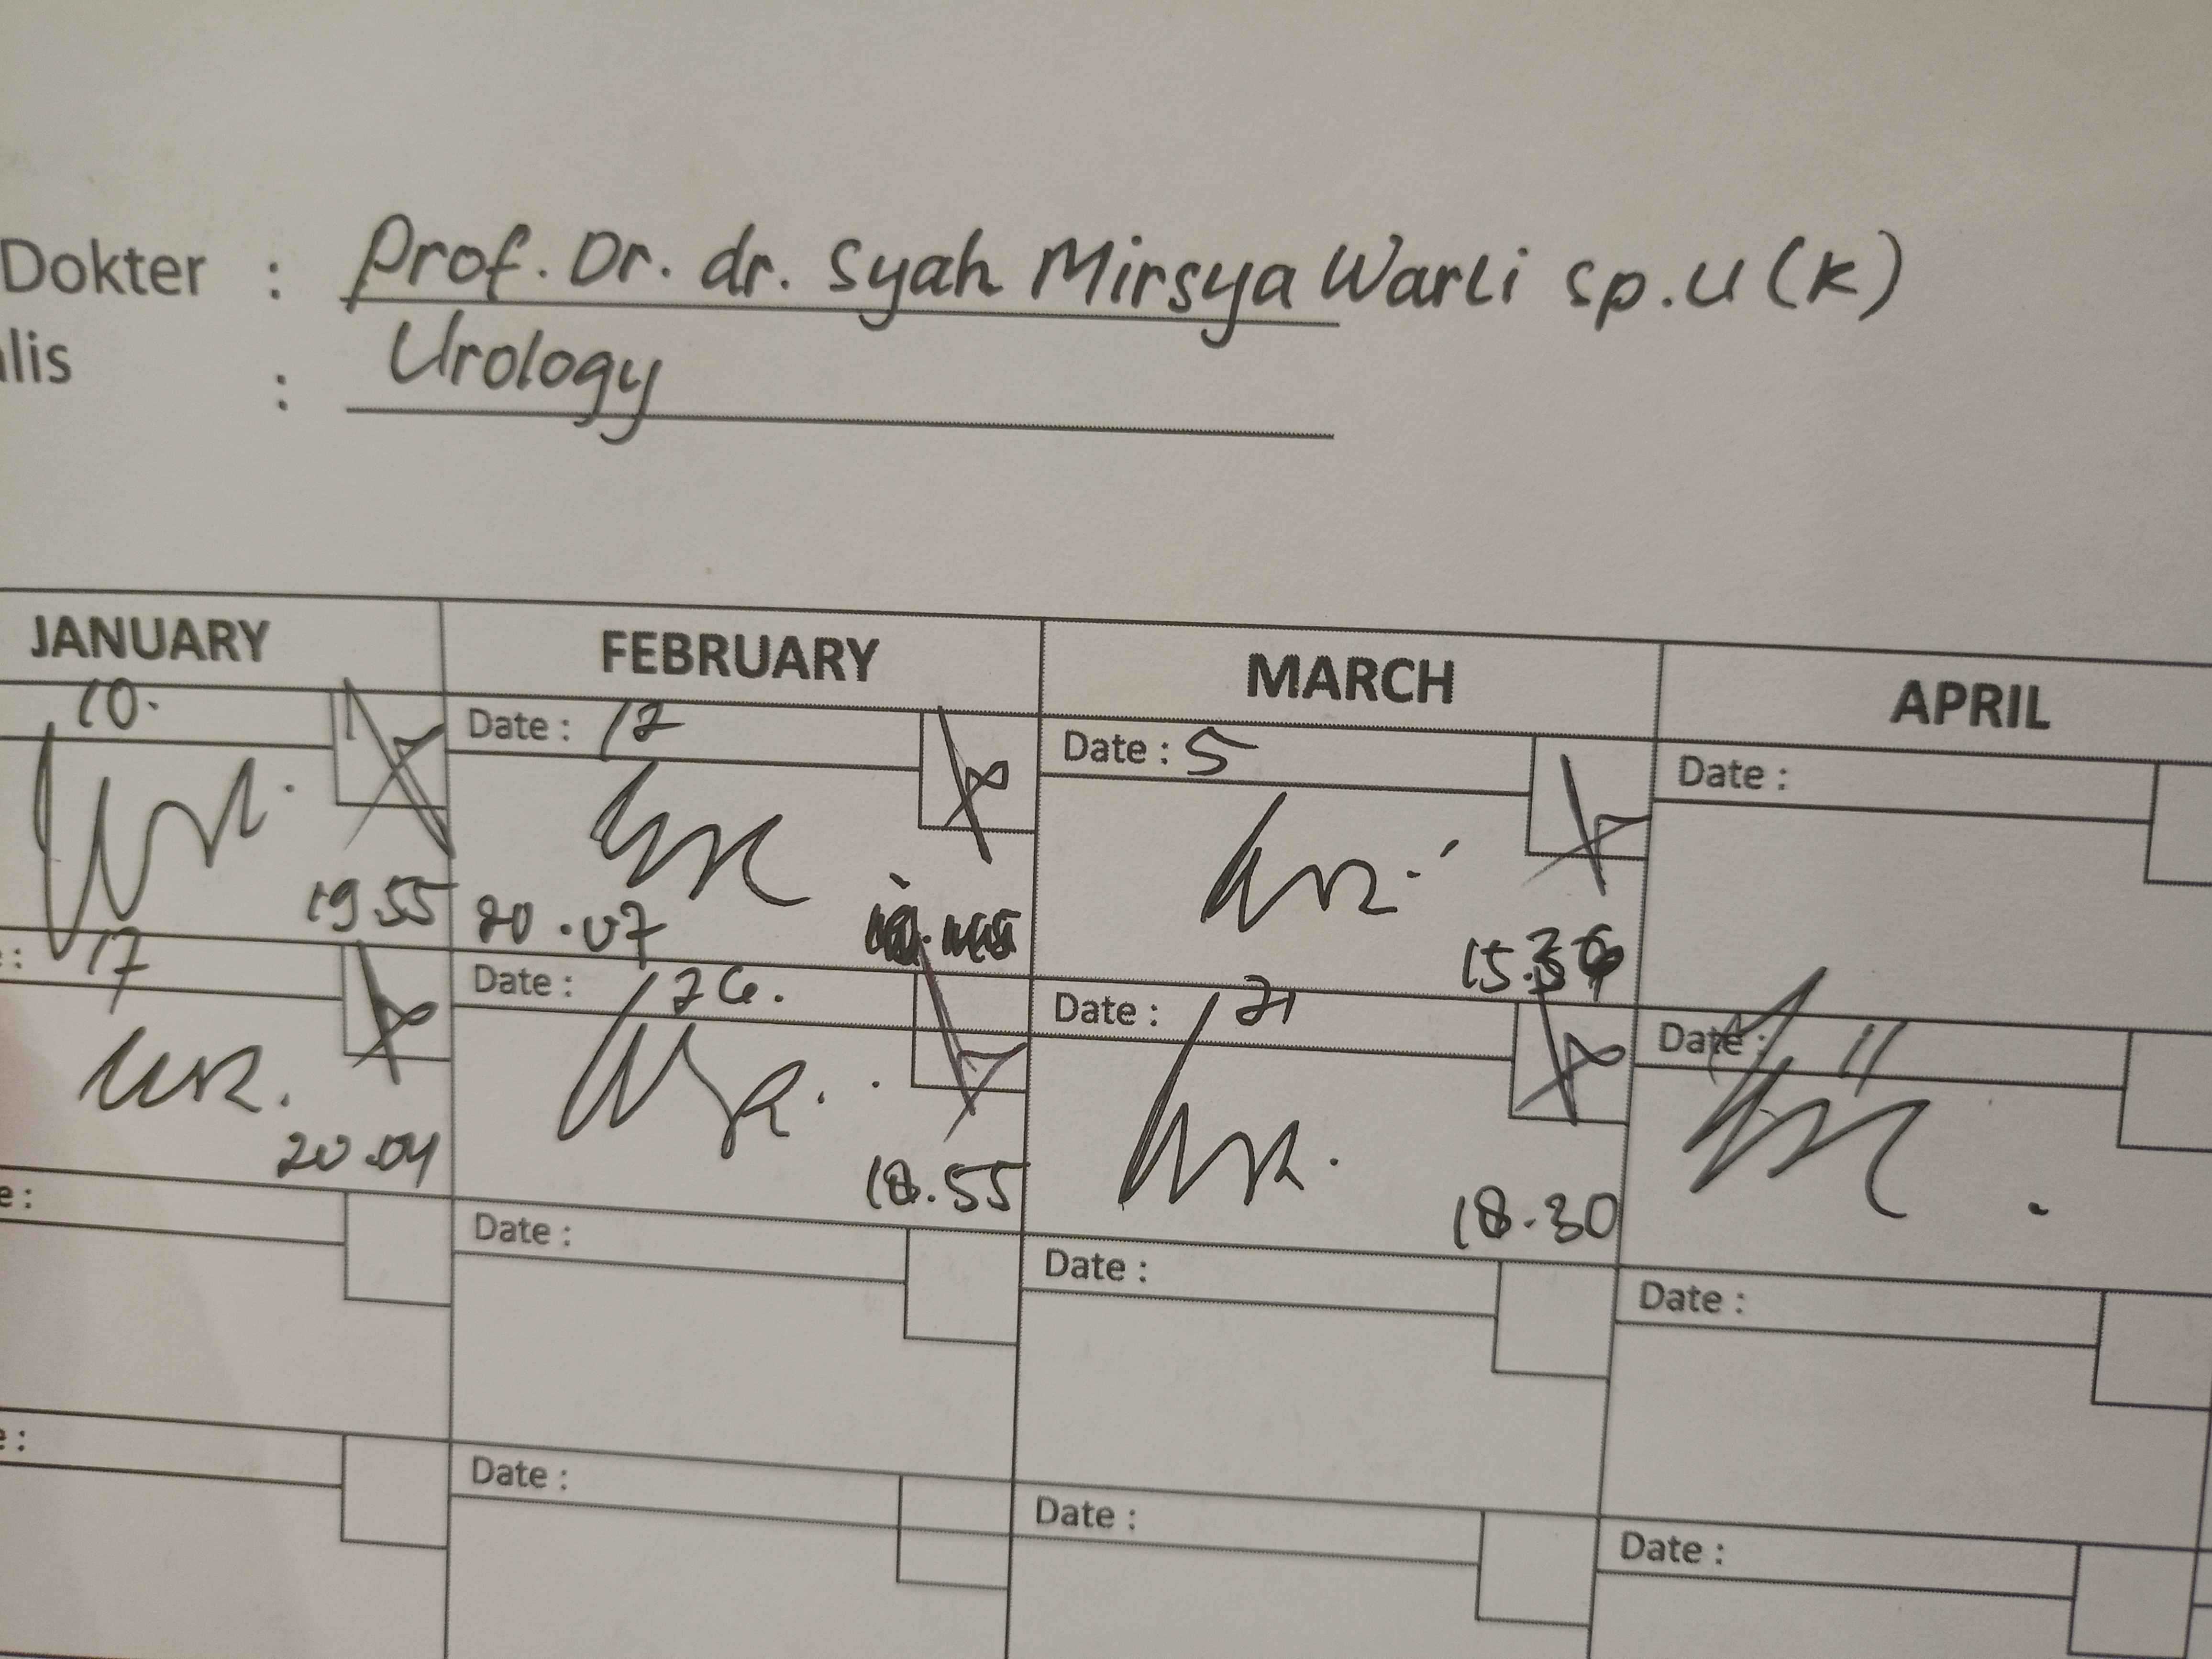 Dokter : Prof. Dr. dr. Syah Mirsya Warli Sp.U (K)
lis : Urology
JANUARY FEBRUARY MARCH APRIL
10. Date : 12 Date : 5 Date :
19 55 20.07
: 17 Date : 26. Date : 21 Date : 11
20.04 18.55 18.30
e : Date : Date : Date :
e : Date : Date : Date :